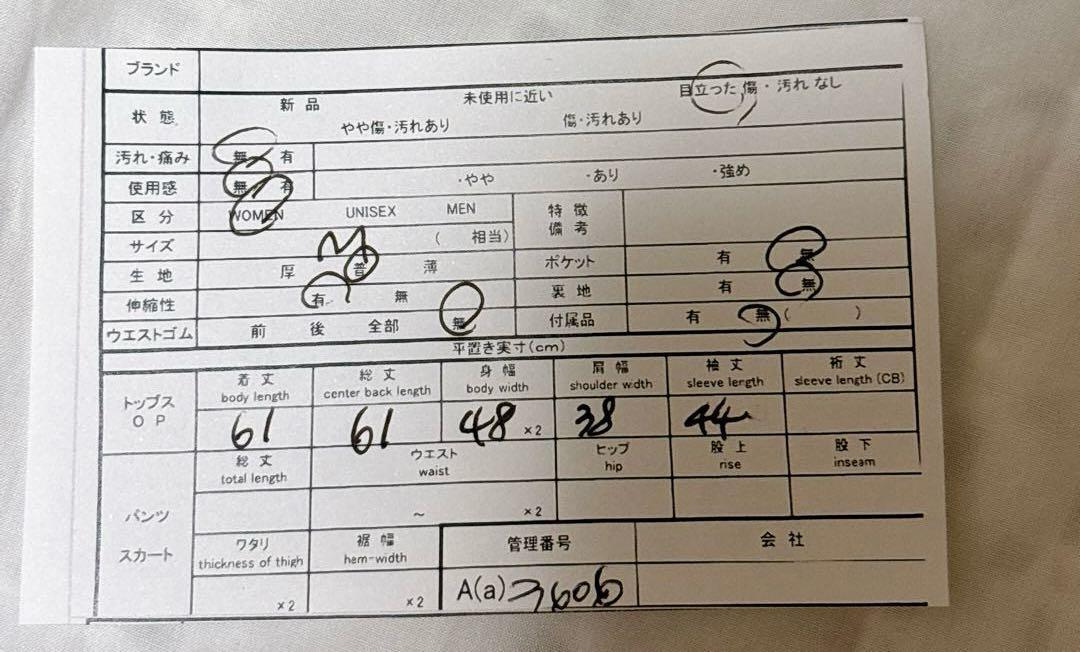 ブランド
状態 新品 未使用に近い 目立った傷・汚れなし
やや傷・汚れあり 傷・汚れあり
汚れ・痛み 無 有
使用感 無 有 ・やや ・あり ・強め
区分 WOMEN UNISEX MEN 特徴備考
サイズ M ( 相当)
生地 厚 普 薄 ポケット 有 無
伸縮性 有 無 裏地 有 無
ウエストゴム 前 後 全部 無 付属品 有 無 ( )
平置き実寸(cm)
トップス OP 着丈 総丈 身幅 肩幅 袖丈 裄丈
body length center back length body width shoulder width sleeve length sleeve length (CB)
61 61 48 ×2 38 44
パンツ スカート 総丈 ウエスト ヒップ 股上 股下
total length waist hip rise inseam
~ ×2
ワタリ 裾幅 管理番号 会社
thickness of thigh hem-width
×2 ×2 A(a) 3606